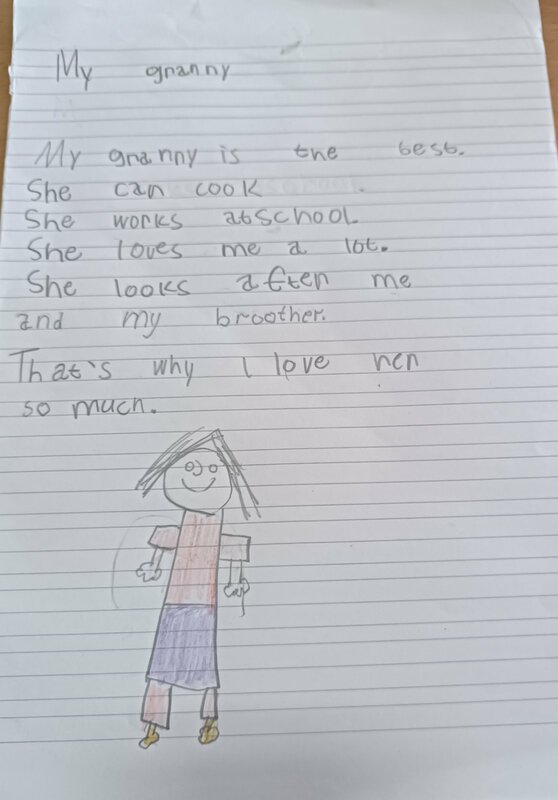 My granny
My granny is the best.
She can cook .
She works atschool
She loves me a lot.
She looks after me
and my broother.
That's why I love her
so much.